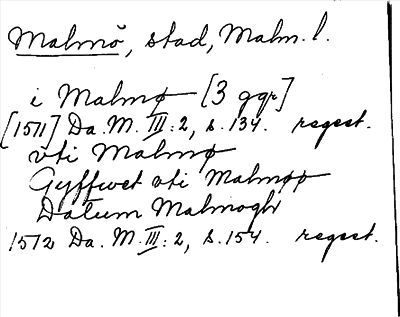 Malmö, stad, Malm. l.
i Malmø [3 ggr]
[1511] Da. M. III: 2, s. 134. regest.
vti Malmø
Gyffwet vti Malmøø
Datum Malmoghi
1512 Da. M. III: 2, s. 154. regest.